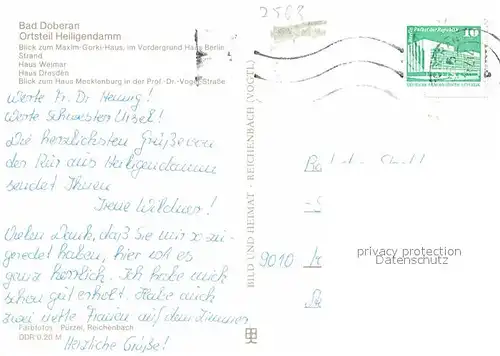 Bad Doberan
Ortsteil Heiligendamm
Blick zum Maxim-Gorki-Haus, im Vordergrund Haus Berlin
Strand
Haus Weimar
Haus Dresden
Blick zum Haus Mecklenburg in der Prof.-Dr.-Vogel-Straße
Werte Fr. Dr. Hennig!
Werte Schwester Ursel!
Die herzlichsten Grüße von
der Kur aus Heiligendamm
sendet Ihnen
Irene Wildner!
Vielen Dank, daß Sie mir so zu-
geredet haben, hier ist es
ganz herrlich. Ich habe mich
schon gut erholt. Habe auch
zwei nette Frauen auf dem Zimmer
Herzliche Grüße!
Farbfotos Pürzel, Reichenbach
DDR 0,20 M
BILD UND HEIMAT · REICHENBACH (VOGTL)
10
9010
privacy protection
Datenschutz